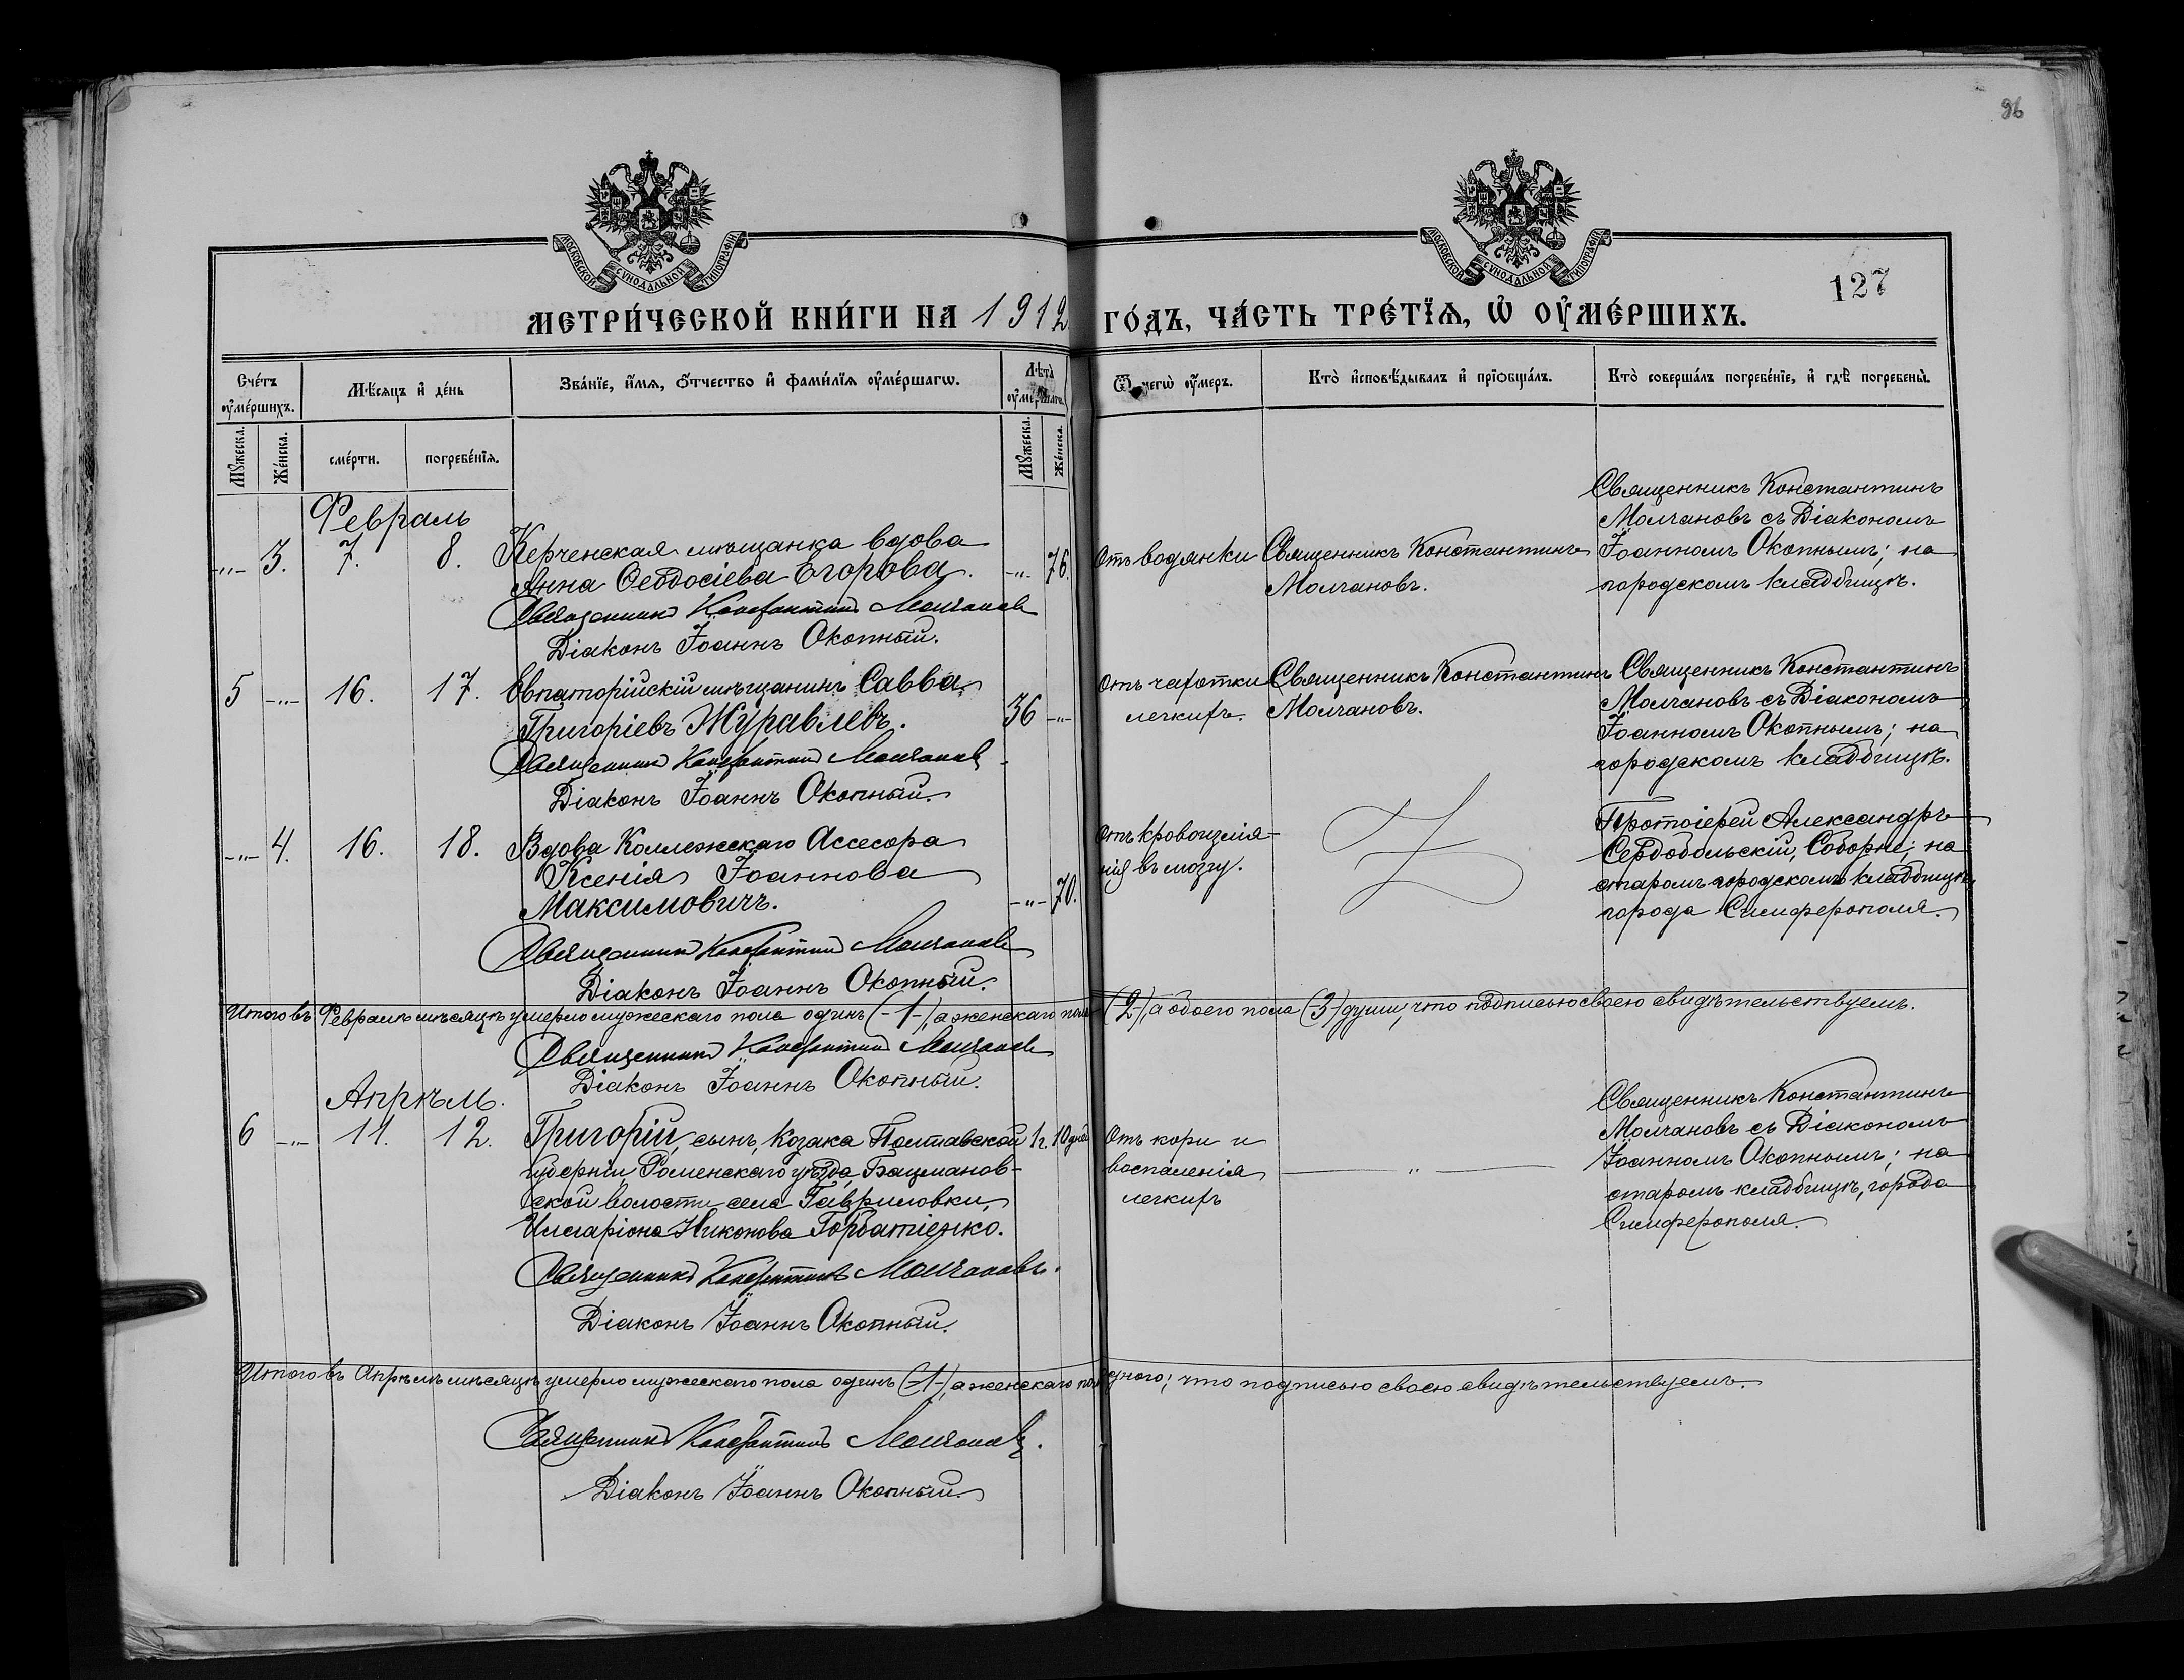 96
МОСКОВСКОЙ СѴНОДАЛЬНОЙ ТИПОГРАФІИ
МОСКОВСКОЙ СѴНОДАЛЬНОЙ ТИПОГРАФІИ
127
МЕТРИ́ЧЕСКОЙ КНИ́ГИ НА 1912 ГО́ДЪ, ЧА́СТЬ ТРЕ́ТЇѦ, Ѡ҆ ОУ҆МЕ́РШИХЪ.
Сче́тъ оу҆ме́ршихъ.
Мѣ́сѧцъ и҆ де́нь
Зва́нїе, и҆́мѧ, ѻ҆́тчество и҆ фами́лїѧ оу҆ме́ршагѡ.
Лѣ́та оу҆ме́ршагѡ.
Ѿ чегѡ̀ оу҆́меръ.
Кто̀ и҆сповѣ́дывалъ и҆ прїѡбща́лъ.
Кто̀ соверша́лъ погребе́нїе, и҆ гдѣ̀ погребены̀.
Мꙋ́жеска.
Же́нска.
сме́рти.
погребе́нїѧ.
Мꙋ́жеска.
Же́нска.
Февраль
-"- 3. 7. 8. Керченская мѣщанка вдова
Анна Ѳеодосіева Егорова. -"- 76.
Священникъ Константинъ Молчановъ
Діаконъ Іоаннъ Окопный.
Отъ водянки
Священникъ Константинъ
Молчановъ.
Священникъ Константинъ
Молчановъ съ Діакономъ
Іоанномъ Окопнымъ; на
городскомъ кладбищѣ.
5 -"- 16. 17. Евпаторійскій мѣщанинъ Савва
Григоріевъ Журавлевъ. 36 -"-
Священникъ Константинъ Молчановъ
Діаконъ Іоаннъ Окопный.
Отъ чахотки
легкихъ.
Священникъ Константинъ
Молчановъ.
Священникъ Константинъ
Молчановъ съ Діакономъ
Іоанномъ Окопнымъ; на
городскомъ кладбищѣ.
-"- 4. 16. 18. Вдова Коллежскаго Ассесора
Ксенія Іоаннова
Максимовичъ. -"- 70.
Священникъ Константинъ Молчановъ
Діаконъ Іоаннъ Окопный.
Отъ кровоизлія-
нія въ мозгу.
Протоіерей Александръ
Сердобольскій, Соборне; на
старомъ городскомъ кладбищѣ
города Симферополя.
Итого въ Февралѣ мѣсяцѣ умерло мужескаго пола одинъ (-1-), а женскаго пола (2-), а обоего пола (3-) души; что подписью своею свидѣтельствуемъ.
Священникъ Константинъ Молчановъ
Діаконъ Іоаннъ Окопный.
Апрѣль.
6 -"- 11. 12. Григорій, сынъ, Козака Полтавской 1 г. 10 дней
губерніи, Роменскаго уѣзда, Бацманов-
ской волости села Гавриловки,
Илларіона Никонова Горбатіенко.
Священникъ Константинъ Молчановъ.
Діаконъ Іоаннъ Окопный.
Отъ кори и
воспаленія
легкихъ
-"-
Священникъ Константинъ
Молчановъ съ Діакономъ
Іоанномъ Окопнымъ; на
старомъ кладбищѣ, города
Симферополя.
Итого въ Апрѣлѣ мѣсяцѣ умерло мужескаго пола одинъ (-1-), а женскаго пола ни одного; что подписью своею свидѣтельствуемъ.
Священникъ Константинъ Молчановъ.
Діаконъ Іоаннъ Окопный.